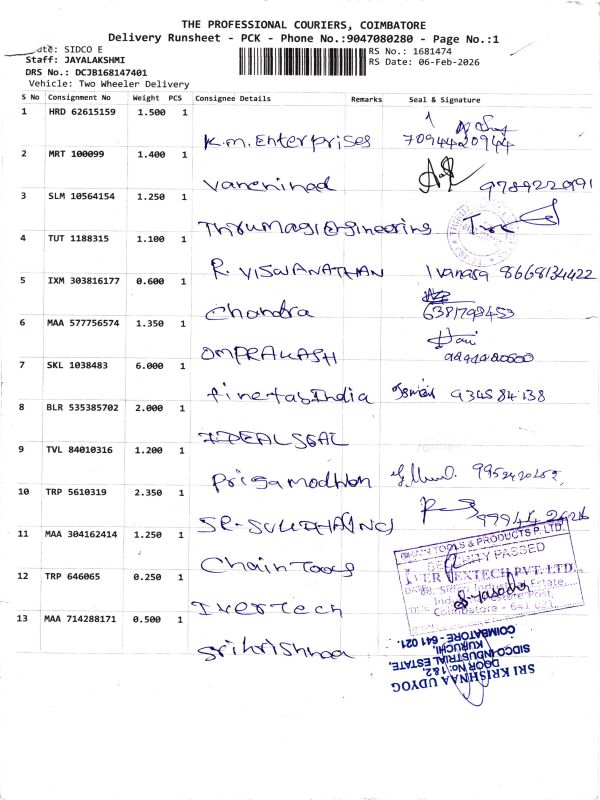 THE PROFESSIONAL COURIERS, COIMBATORE
Delivery Runsheet - PCK - Phone No.:9047080280 - Page No.:1
SIDCO E
RS No.: 1681474
Staff: JAYALAKSHMI
RS Date: 06-Feb-2026
DRS No.: DCJB168147401
Vehicle: Two Wheeler Delivery
S No Consignment No Weight PCS Consignee Details Remarks Seal & Signature
1 HRD 62615159 1.500 1
K.m. Enterprises 7094420944
2 MRT 100099 1.400 1
9789220991
3 SLM 10564154 1.250 1
4 TUT 1188315 1.100 1
R. VISWANATHAN 8668134422
5 IXM 303816177 0.600 1
Chandra 6381798453
6 MAA 577756574 1.350 1
OMPRAKASH
7 SKL 1038483 6.000 1
finetabIndia 934584138
8 BLR 535385702 2.000 1
IDEAL SEAL
9 TVL 84010316 1.200 1
10 TRP 5610319 2.350 1
11 MAA 304162414 1.250 1
CHAIN TOOLS & PRODUCTS P. LTD.
SECURITY PASSED
Chain Tools
12 TRP 646065 0.250 1
Ivertech
13 MAA 714288171 0.500 1
Coimbatore - 641 021.
Srikrishnaa
SRI KRISHNAA UDYOG
DOOR No: 1&2,
SIDCO INDUSTRIAL ESTATE,
KURUCHI,
COIMBATORE - 641 021.